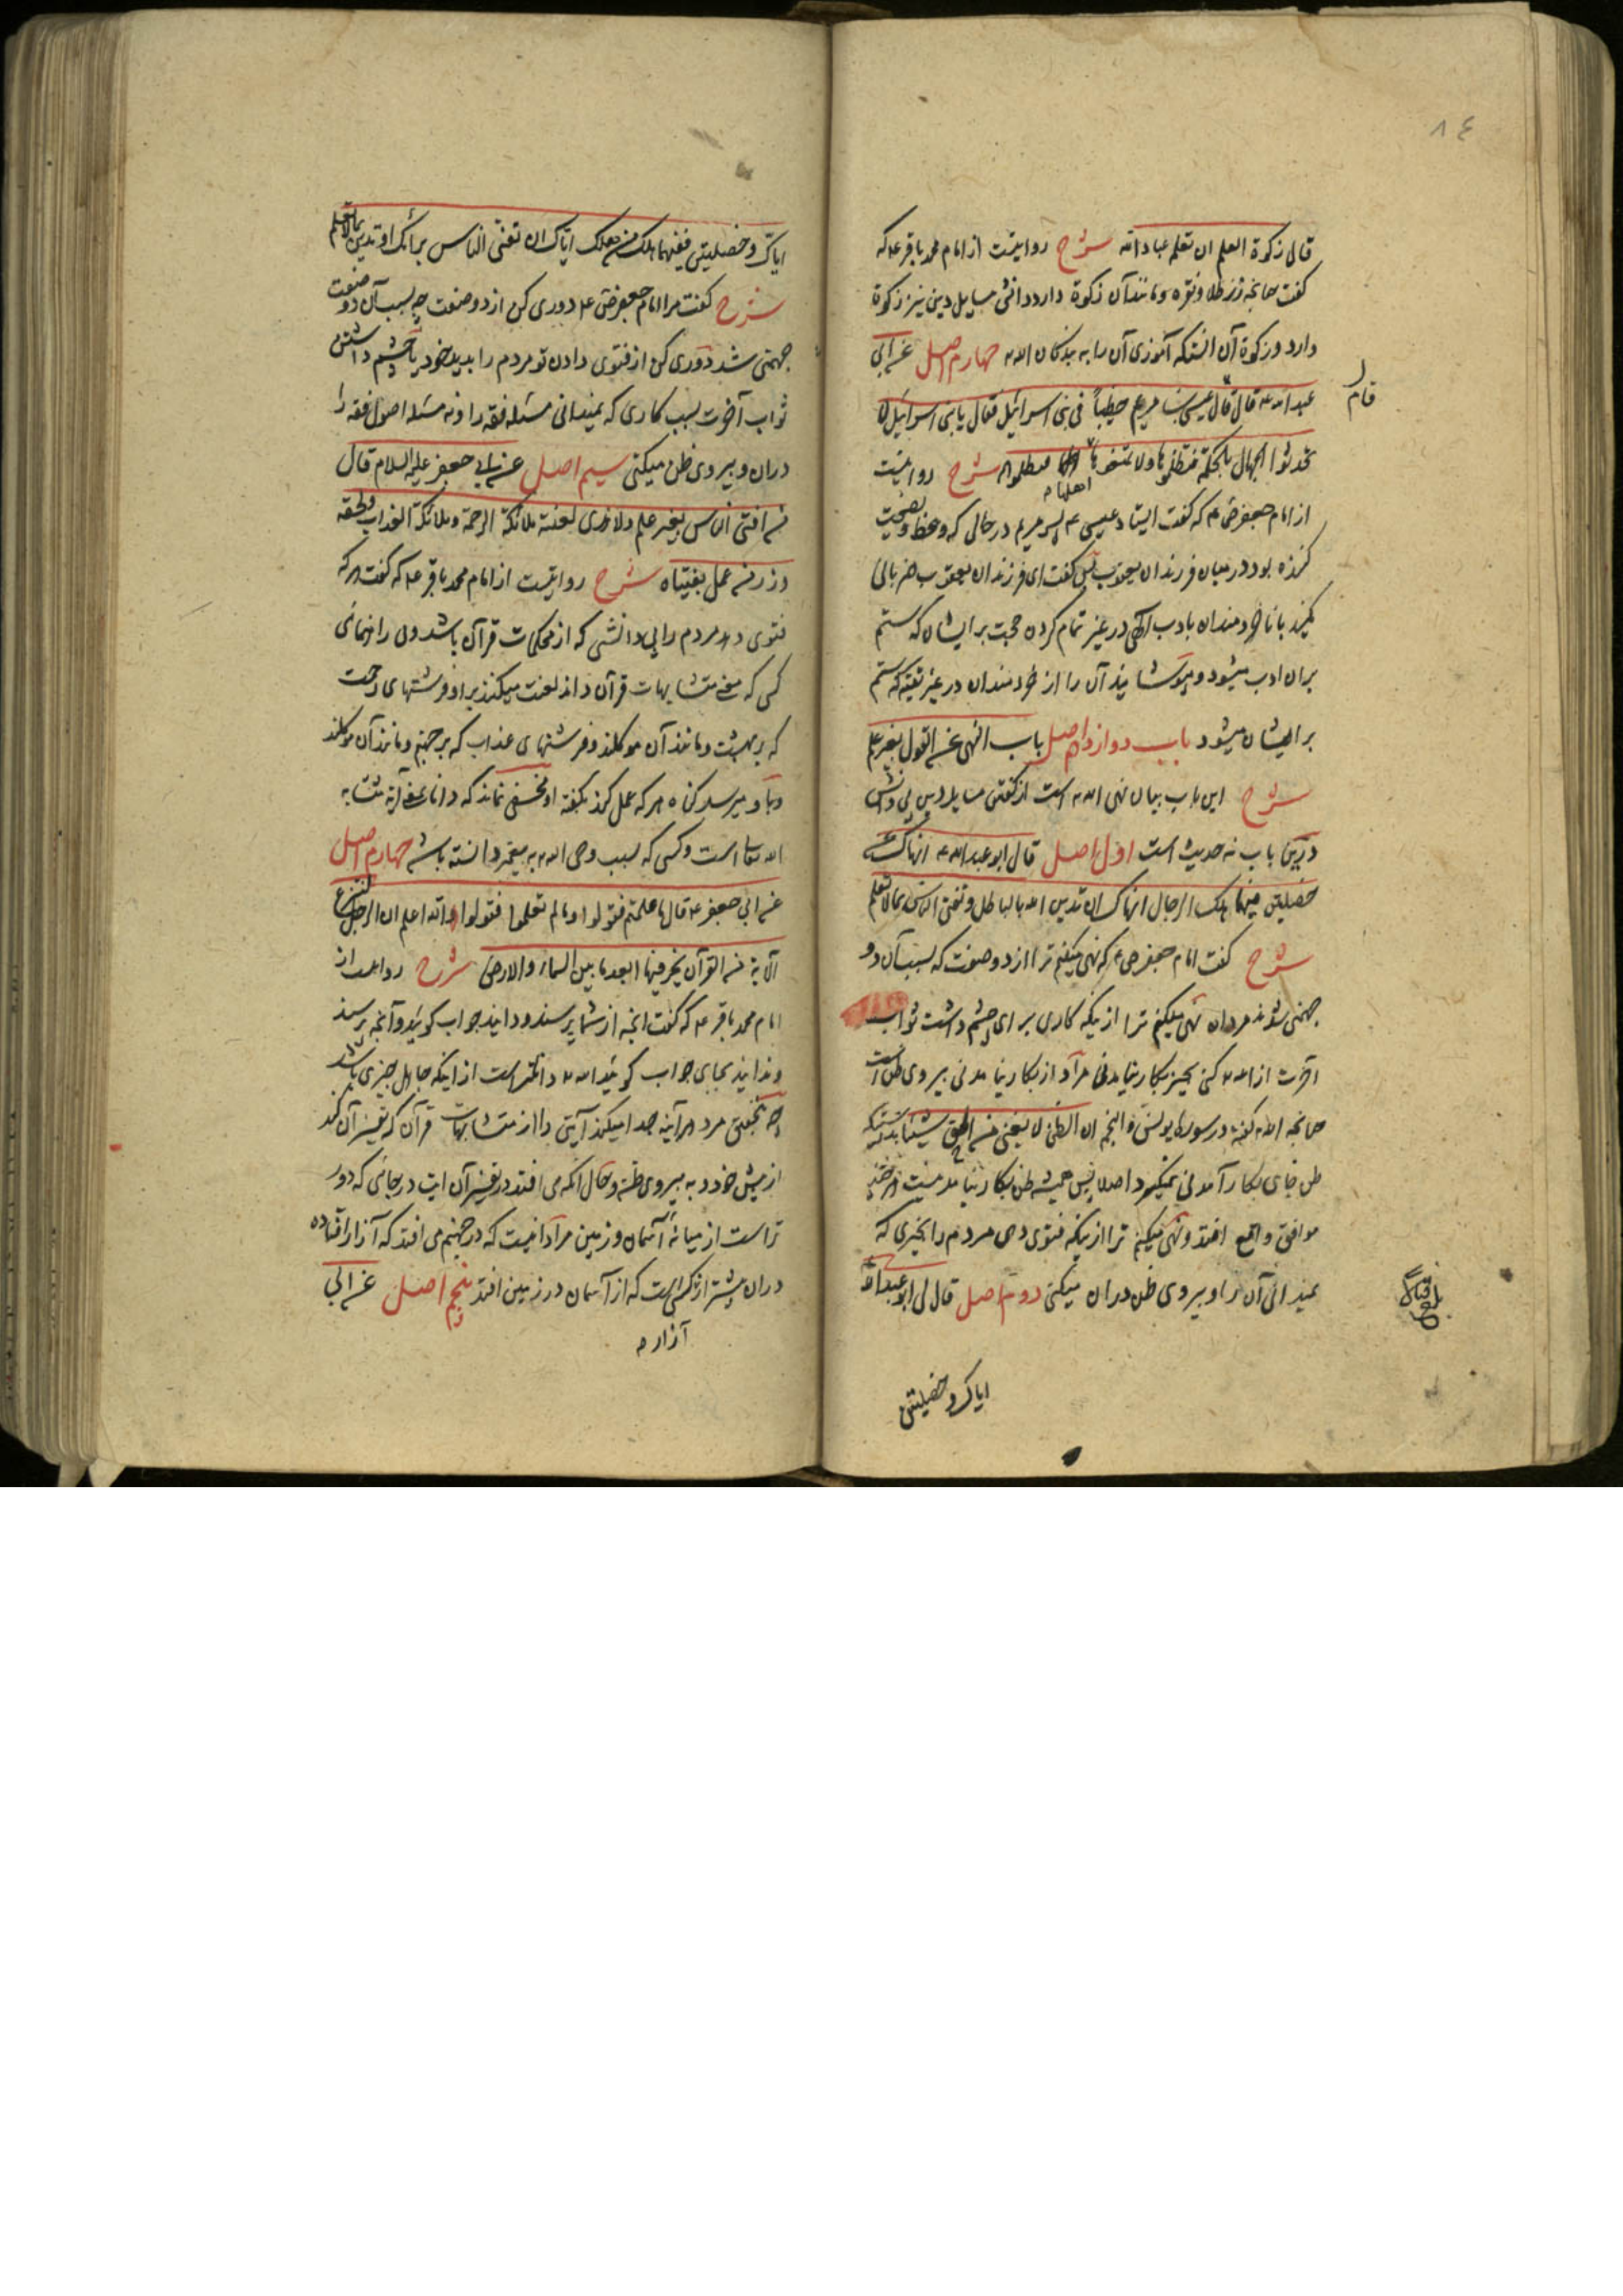 ٨٤
قال زکوة العلم ان تعلمه عباد الله شرح روایتست از امام محمد باقر ع که
گفت چنانچه زر طلا و نقره و مانند آن زکوة دارد دانش مسایل دین نیز زکوة
دارد و زکوة آن آنستکه آموزی آن را به بندگان الله چهارم اصل عن ابی
عبد الله ع قال قال عیسی بن مریم خطیباً فی بنی اسرائیل فقال یا بنی اسرائیل لا
قام
تحدثوا الجهال بالحکمة فتظلموها ولا تمنعوها اهلها فتظلموهم شرح روایتست
اهلها
از امام جعفر ص ع که گفت ایستاد عیسی ع پسر مریم در حالی که وعظ و نصیحت
کننده بود در میان فرزندان یعقوب پس گفت ای فرزندان یعقوب هم زبانی
مکنید با ناخردمندان بادب الهی در غیر تمام کردن حجت بر ایشان که ستم
بران ادب میشود و مپوشانید آن را از خردمندان در غیر تقیه که ستم
بر ایشان میشود باب دوازدهم اصل باب النهی عن القول بغیر علم
شرح این باب بیان نهی الله است از گفتن مسایل دین بی دانش
درین باب نه حدیث است اول اصل قال ابو عبد الله ع انهاک عن
خصلتین فیهما هلک الرجال انهاک ان تدین الله بالباطل و تفتی الناس بما لا تعلم
شرح گفت امام جعفر ص ع که نهی میکنم ترا از دو صفت که بسبب آن دو
جهنمی شوند مردان نهی میکنم ترا از یکه کاری برای چشم داشت ثواب
آخرت از الله کنی بچیز بکار نیامدنی مراد از بکار نیامدنی پیروی ظن است
چنانچه الله گفته در سوره یونس و النجم ان الظن لا یغنی من الحق شیئا بدرستیکه
ظن جای بکار آمدنی نمیگیرد اصلا پس همیشه ظن بکار نیامدنیست هر چند
موافق واقع افتد و نهی میکنم ترا از یکه فتوی دهی مردم را بچیزی که
نمیدانی آن را و پیروی ظن دران میکنی دوم اصل قال لی ابو عبد الله
ایاک و خصلتین
ایاک و خصلتین ففیهما هلک من هلک ایاک ان تفتی الناس برأیک او تدین بما لا تعلم
شرح گفت مرا امام جعفر ص ع دوری کن از دو صفت چه بسبب آن دو صفت
جهنمی شد دوری کن از فتوی دادن تو مردم را بدید خود یا چشم داشتن
ثواب آخرت بسبب کاری که نمیدانی مسئله فقه را و نه مسئله اصول فقه را
دران و پیروی ظن میکنی سیم اصل عن ابی جعفر علیه السلام قال
من افتی الناس بغیر علم ولا هدی لعنته ملائکة الرحمة و ملائکة العذاب و لحقه
وزر من عمل بفتیاه شرح روایتست از امام محمد باقر ع که گفت هر که
فتوی دهد مردم را بی دانشی که از محکمات قرآن باشد و بی راهنمائی
کسی که معنی متشابهات قرآن داند لعنت میکنند بر او فرشتهای رحمت
که بر بهشت و مانند آن موکلند و فرشتهای عذاب که بر جهنم و مانند آن موکلند
و باو میرسد گناه هر که عمل کند بگفته او مخفی نماند که دانای معنی آیه متشابه
الله تعالی است و کسی که بسبب وحی الله به پیغمبر دانسته باشد چهارم اصل
عن ابی جعفر ع قال ما علمتم فقولوا و ما لم تعلموا فقولوا الله اعلم ان الرجل لینتزع
الآیة من القرآن یخر فیها ابعد ما بین السماء والارض شرح روایتست از
امام محمد باقر ع که گفت آنچه از شما پرسند و دانید جواب گوئید و آنچه پرسند
و ندانید بجای جواب گوئید الله داناتر است از اینکه جاهل چیزی باشد
چه بتحقیق مرد هر آینه جدا میکند آیتی را از متشابهات قرآن که تفسیر آن کند
از پیش خود به پیروی ظن و حال آنکه می افتد در تفسیر آن آیت در جائی که دور
تر است از میانه آسمان و زمین مراد آنست که در جهنم می افتد که آزار افتاده
دران بیشتر از کسی است که از آسمان در زمین افتد پنجم اصل عن ابی
آزار